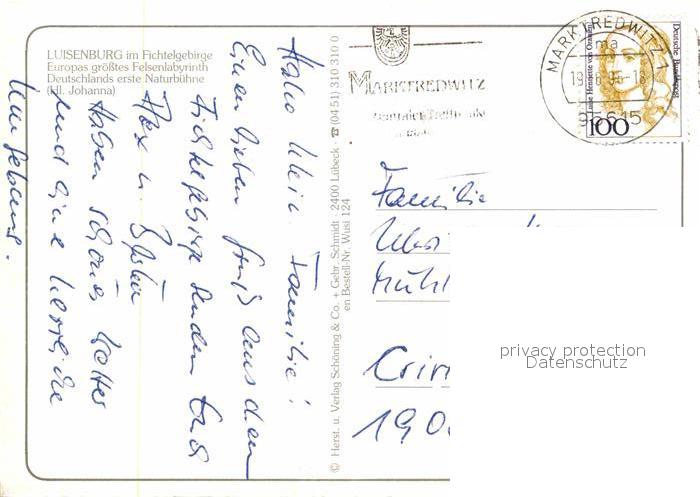 LUISENBURG im Fichtelgebirge
Europas größtes Felsenlabyrinth
Deutschlands erste Naturbühne
(Hl. Johanna)
Hallo Familie!
Einen lieben Gruß aus dem
Fichtelgebirge senden Euch
Max u.
Haben schönes Wetter
und eine herrliche
Umgebung.
© Herst. u. Verlag Schöning & Co. + Gebr. Schmidt · 2400 Lübeck · ☎ (04 51) 3 10 31 0
en Bestell-Nr. Wusi 124
MARKTREDWITZ
MARKTREDWITZ 1
ma
95615
Deutsche Bundespost
100
Familie
privacy protection
Datenschutz